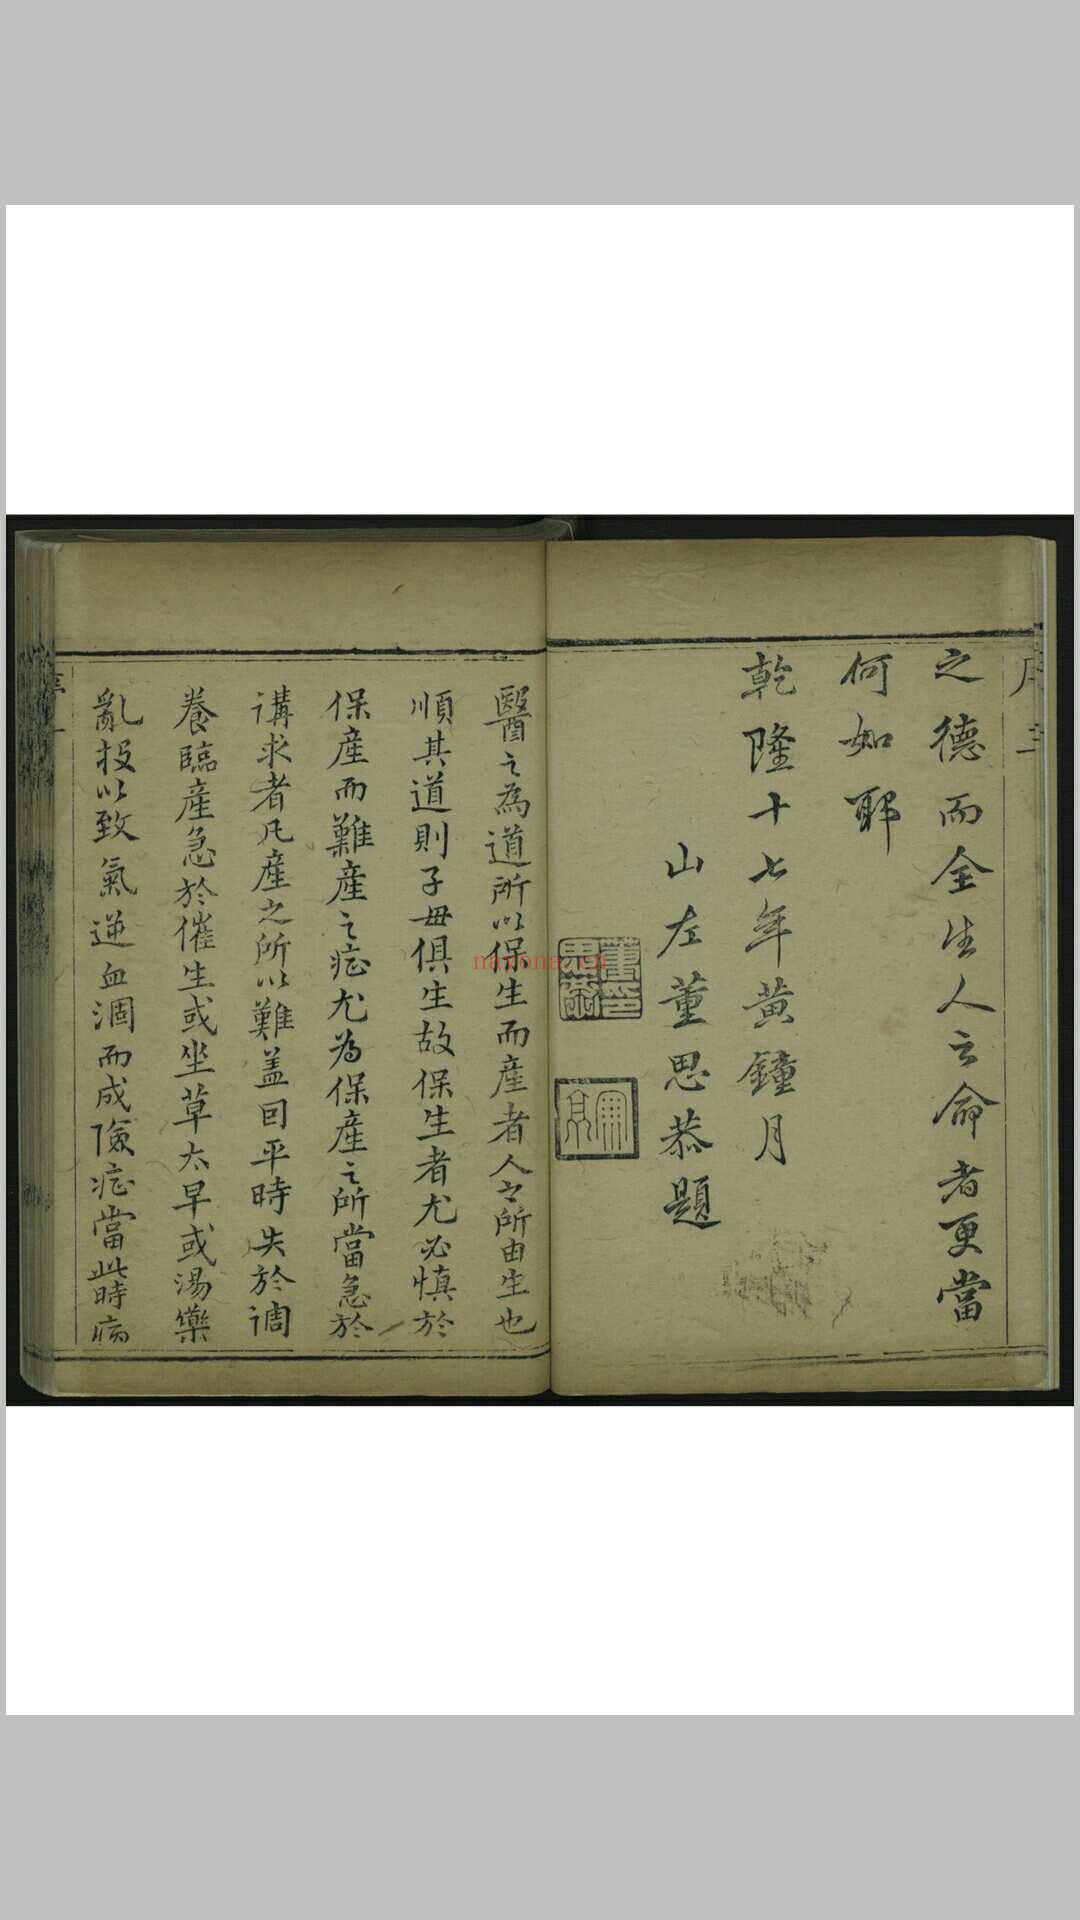 之德而全生人之命者更當
何如耶
乾隆十七年黃鐘月
山左董思恭題
醫之為道所以保生而產者人之所由生也
順其道則子母俱生故保生者尤必慎於
保產而難產之症尤為保產之所當急於
講求者凡產之所以難蓋因平時失於調
養臨產急於催生或坐草太早或湯藥
亂投以致氣逆血涸而成險症當此時病
nayona.cn